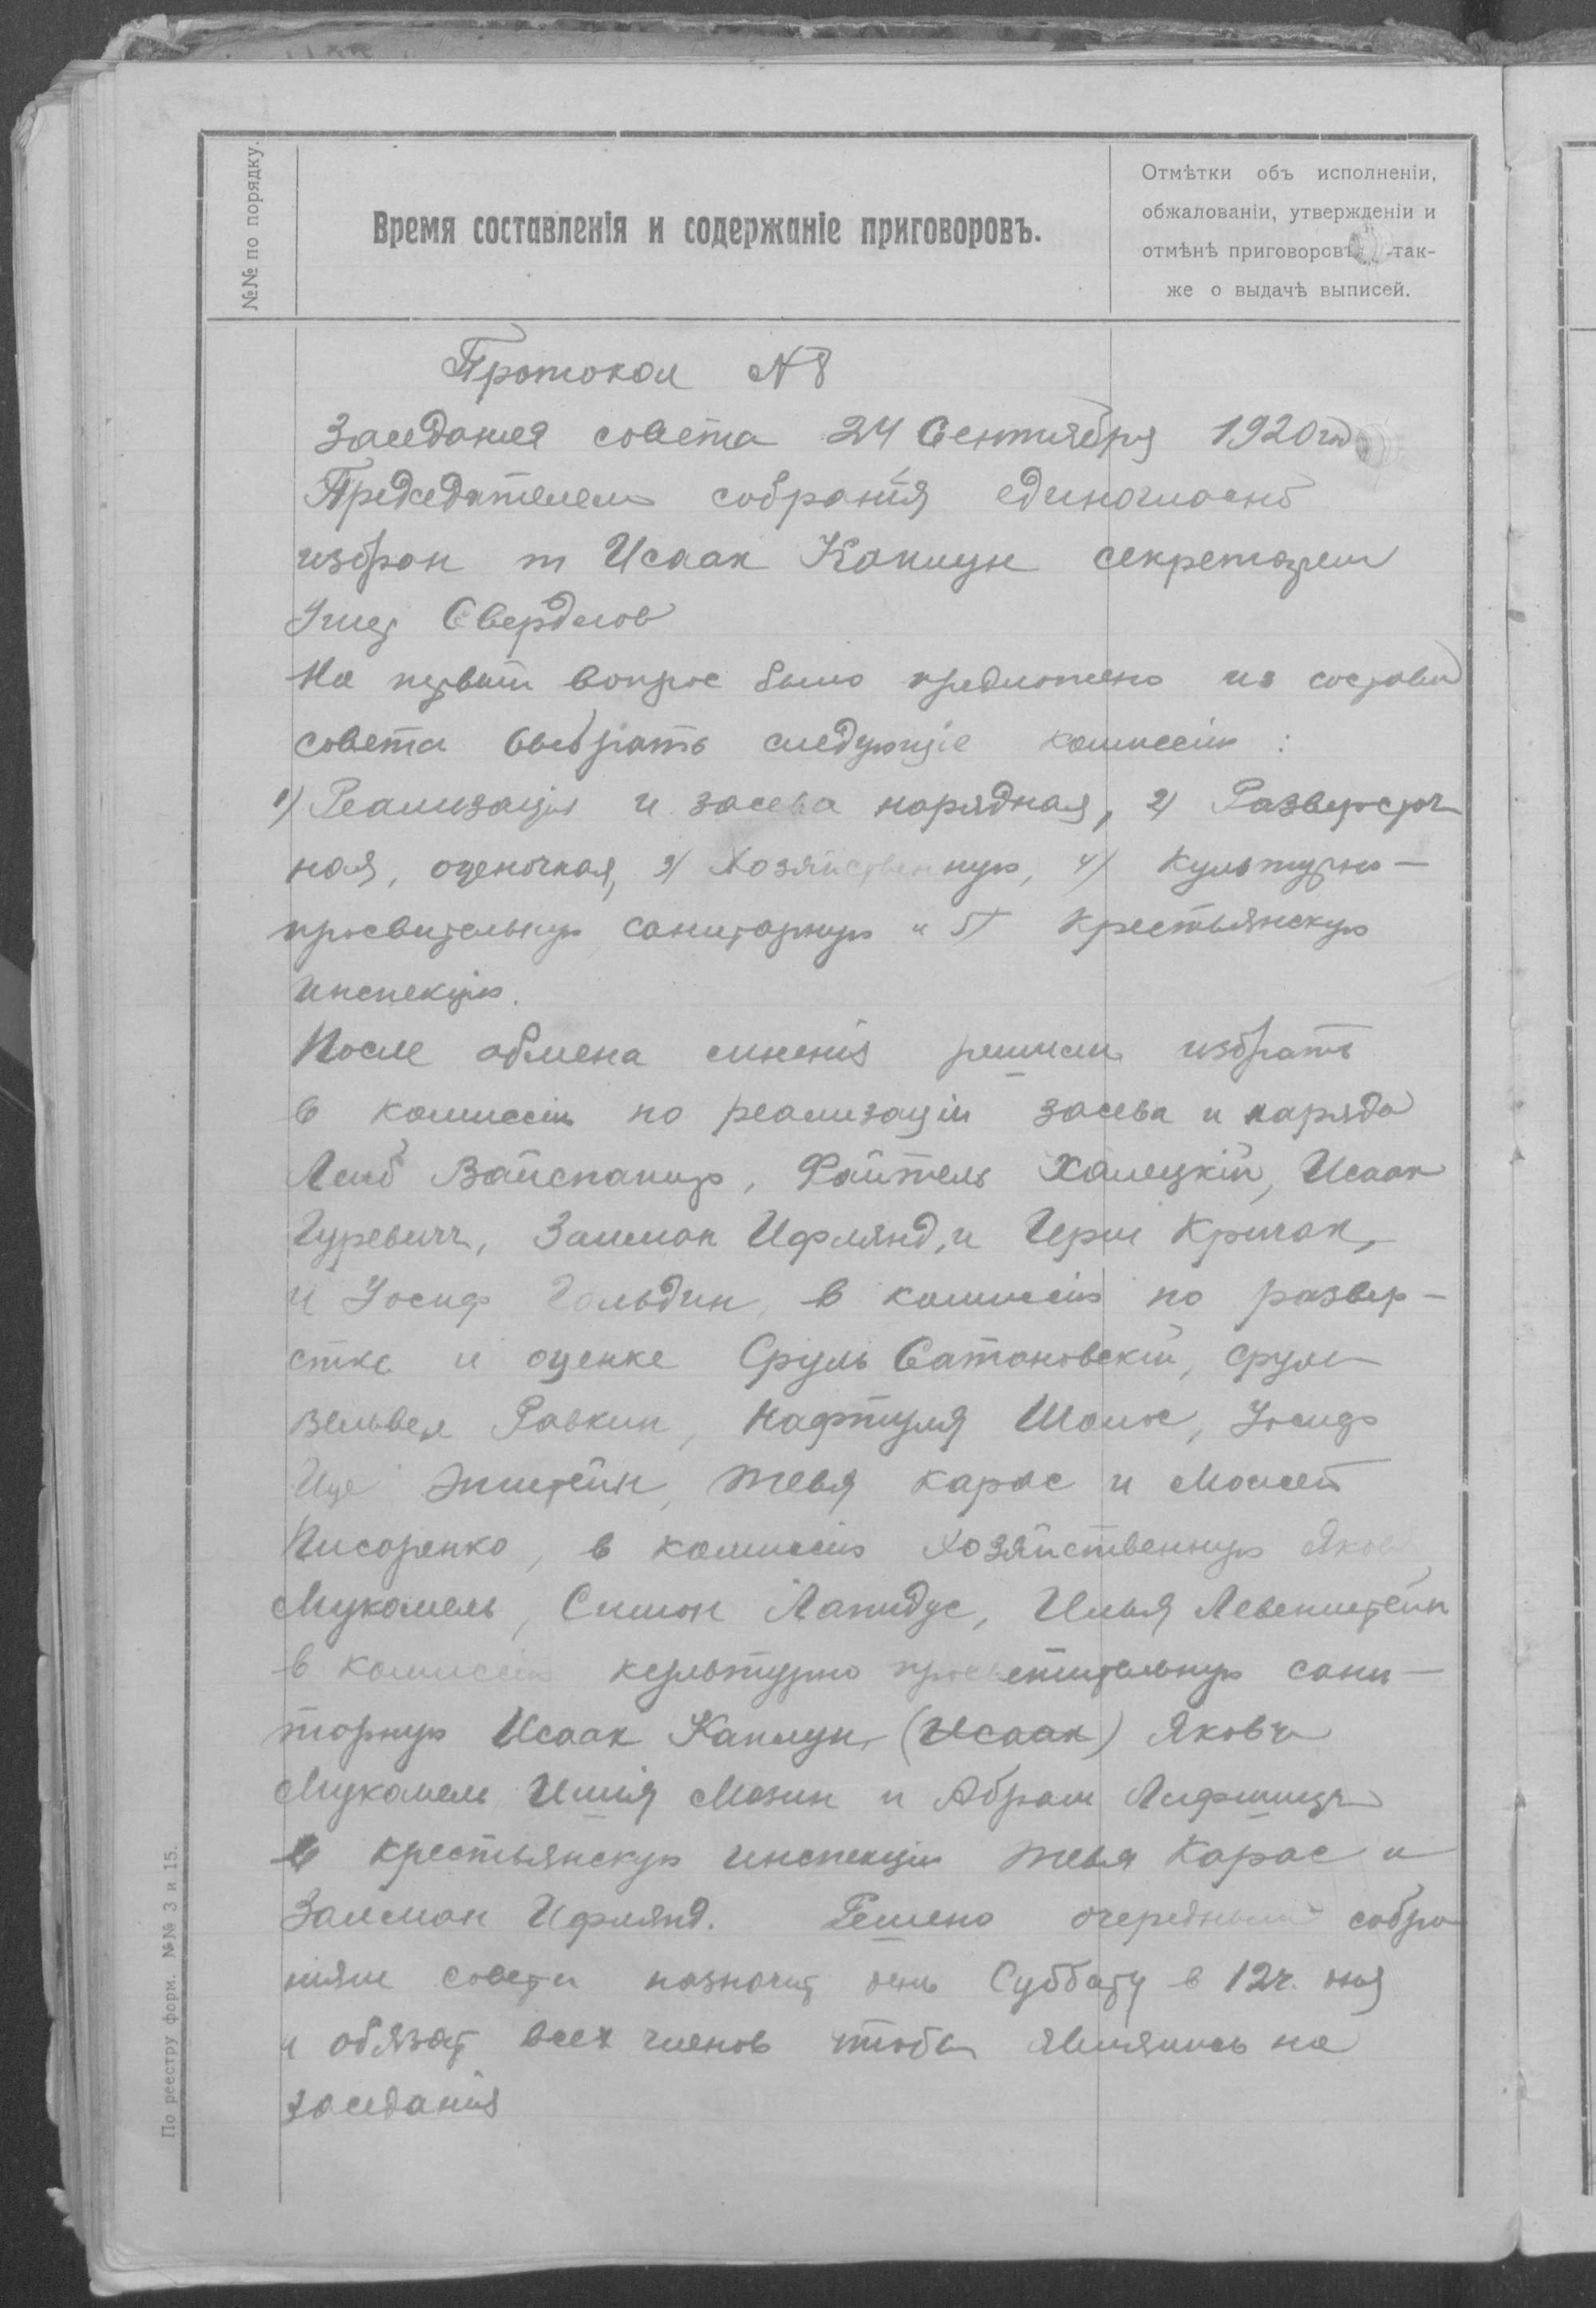 №№ по порядку.
Время составленія и содержаніе приговоровъ.
Отмѣтки объ исполненіи,
обжалованіи, утвержденіи и
отмѣнѣ приговоровъ, так-
же о выдачѣ выписей.
Протокол N 8
Заседания совета 24 Сентября 1920 год
Председателем собранія единогласно
избран т Исаак Каплун секретарем
Свердлов
На первый вопрос было предложено из состава
совета выбрать следующіе комиссіи :
1) Реализація и засева нарядная, 2) Разверсточ
ная, оценочная, 3) Хозяйственную, 4) Культурно-
просвительную санитарную и 5) Крестьянскую
инспекцію.
После обмена мненія решили избрать
в комиссію по реализаціи засева и наряда
Лейб Вайспапир, Файтель Халецкій, Исаак
Гуревич, Залман Ифлянд, и Герш Кричак,
и Іосиф Гольдин, в комиссію по развер-
стке и оценке Сруль Сатановскій, Срул
Вельвел Равкин, Нафтуля Шолос, Іосиф
Ице Эпштейн, Тевя Карас и Моисей
Писаренко, в комиссію Хозяйственную Яков
Мукомель, Симон Лапидус, Илья Левенштейн
в комиссію культурно просветительную сани-
тарную Исаак Каплун, (Исаак) Яков
Мукомель Мазин и Абрам Лифшиц
в крестьянскую инспекцію Тевя Карас и
Залман Ифлянд. Решено очередным собра
ніям совета назначит день Субботу в 12 ч. дня
и обязат всех членов чтобы являлись на
заседанія
По реестру форм. №№ 3 и 15.